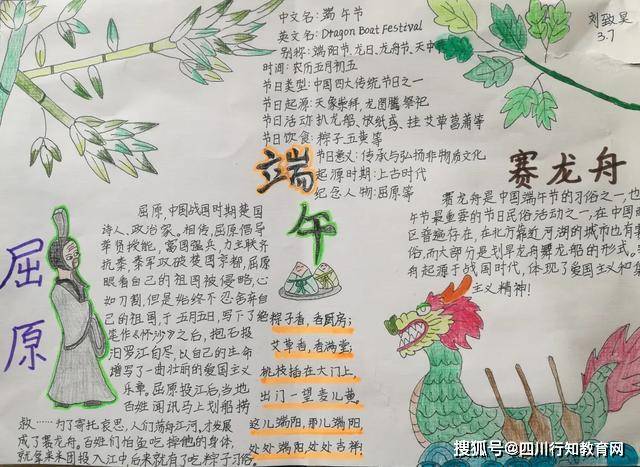 中文名:端午节
英文名:Dragon Boat Festival
别称:端阳节、龙日、龙舟节、天中节
时间:农历五月初五
节日类型:中国四大传统节日之一
节日起源:天象崇拜、龙图腾祭祀
节日活动:扒龙船、放纸鸢、挂艾草菖蒲等
节日饮食:粽子五黄等
节日意义:传承与弘扬非物质文化
起源时期:上古时代
纪念人物:屈原等
刘致呈
3.7
端午
屈原
屈原,中国战国时期楚国
诗人、政治家。相传,屈原倡导
举贤授能,富国强兵,力主联齐
抗秦,秦军攻破楚国京都,屈原
眼看自己的祖国被侵略,心
如刀割,但是始终不忍舍弃自
己的祖国,于五月五日,写下了绝
笔作《怀沙》之后,抱石投
汨罗江自尽,以自己的生命
谱写了一曲壮丽的爱国主义
乐章。屈原投江后,当地
百姓闻讯马上划船捞
救……为了寄托哀思,人们荡舟江河,才发展
成了赛龙舟。百姓们怕鱼吃掉他的身体,
就拿来米团投入江中,后来就有了吃粽子习俗。
粽子香,香厨房;
艾草香,香满堂;
桃枝插在大门上,
出门一望麦儿黄。
这儿端阳,那儿端阳,
处处端阳,处处吉祥!
赛龙舟
赛龙舟是中国端午节的习俗之一,也
午节最重要的节日民俗活动之一,在中国
区普遍存在,在北方靠近河湖的城市也有赛
俗,而大部分是划旱龙舟舞龙船的形式。
舟起源于战国时代,体现了爱国主义和集
主义精神!
搜狐号@四川行知教育网